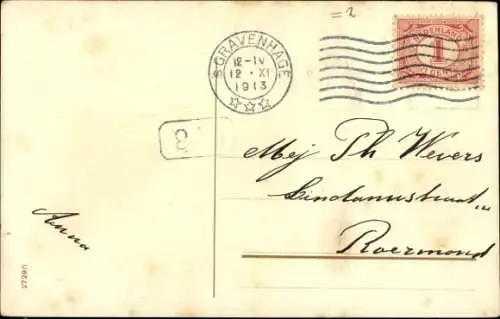 =2
'SGRAVENHAGE
12-IV
12 · XI
1913
NEDERLAND
1
8
Mej Th Wevers
Lindanusstraat
Roermond
Anna